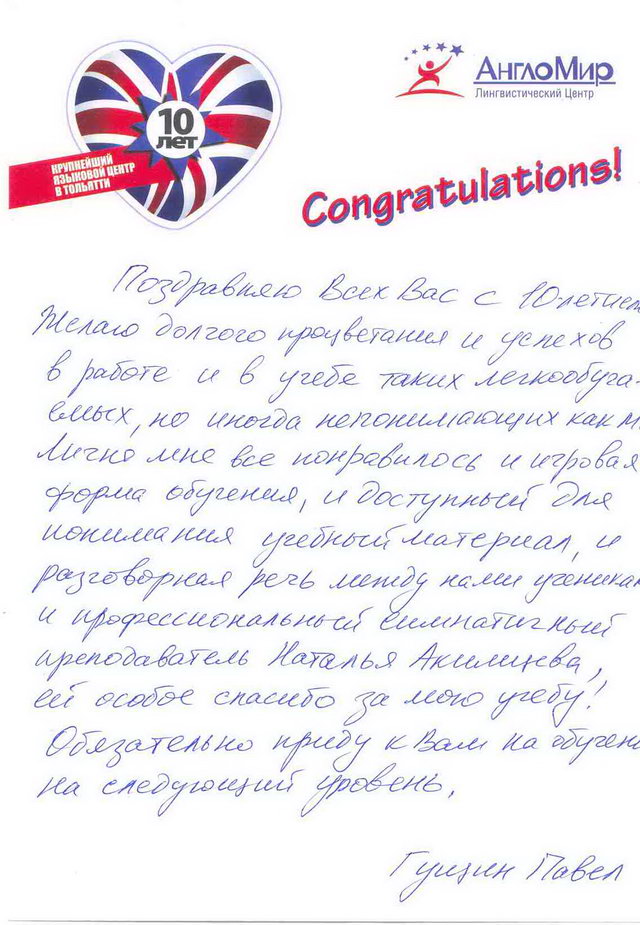 10
лет
КРУПНЕЙШИЙ
ЯЗЫКОВОЙ ЦЕНТР
В ТОЛЬЯТТИ
АнглоМир
Лингвистический Центр
Congratulations!
Поздравляю Всех Вас с 10-летием
Желаю долгого процветания и успехов
в работе и в учебе таких легкообуча-
емых, но иногда непонимающих как
Лично мне все понравилось и игровая
форма обучения, и доступный для
понимания учебный материал, и
разговорная речь между нами ученикам
и профессиональный симпатичный
преподаватель Наталья
ей особое спасибо за мою учебу!
Обязательно приду к Вам на обучени
на следующий уровень.
Гущин Павел